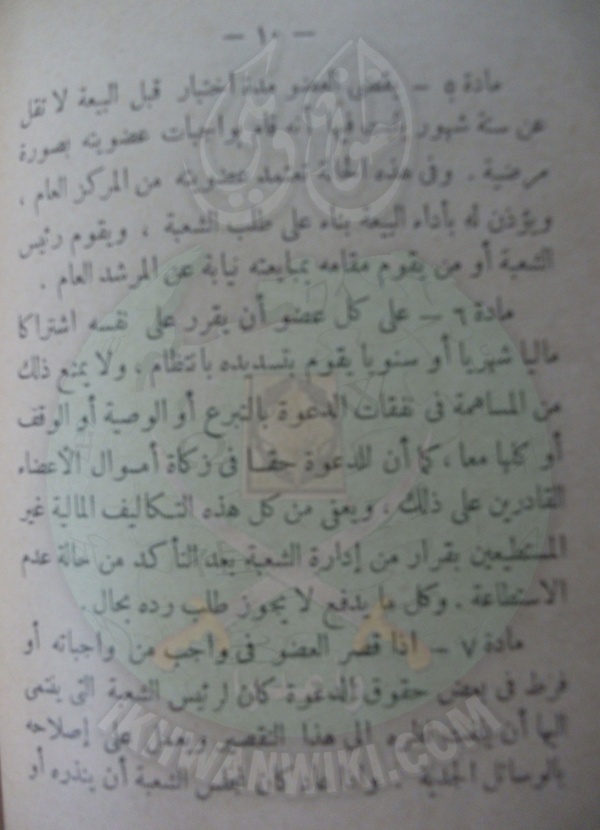 — ١٠ —
مادة ٥ — يقضى العضو مدة اختبار قبل البيعة لا تقل
عن ستة شهور يثبت فيها أنه قام بواجبات عضويته بصورة
مرضية . وفى هذه الحالة تعتمد عضويته من المركز العام ،
ويؤذن له بأداء البيعة بناء على طلب الشعبة ، ويقوم رئيس
الشعبة أو من يقوم مقامه بمبايعته نيابة عن المرشد العام .
مادة ٦ — على كل عضو أن يقرر على نفسه اشتراكا
ماليا شهريا أو سنويا يقوم بتسديده بانتظام ، ولا يمنع ذلك
من المساهمة فى نفقات الدعوة بالتبرع أو الوصية أو الوقف
أو كلها معا ، كما أن للدعوة حقا فى زكاة أموال الأعضاء
القادرين على ذلك ، ويعفى من كل هذه التكاليف المالية غير
المستطيعين بقرار من إدارة الشعبة بعد التأكد من حالة عدم
الاستطاعة . وكل ما يدفع لا يجوز طلب رده بحال .
مادة ٧ — اذا قصر العضو فى واجب من واجباته أو
فرط فى بعض حقوق الدعوة كان لرئيس الشعبة التى ينتمى
اليها أن يلفت نظره الى هذا التقصير ويعمل على إصلاحه
بالوسائل الحبية . واذا عاد كان لمجلس الشعبة أن ينذره أو
إخوان ويكي
IKHWANWIKI.COM